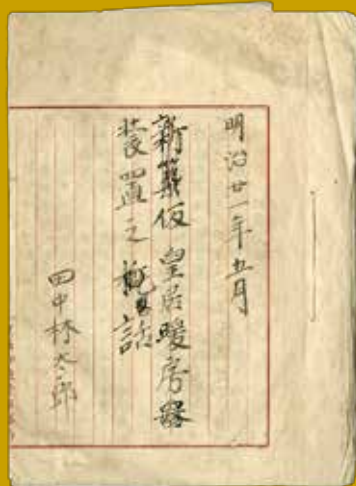 明治廿一年五月
新築仮皇居暖房器
装置之概話
田中林太郎